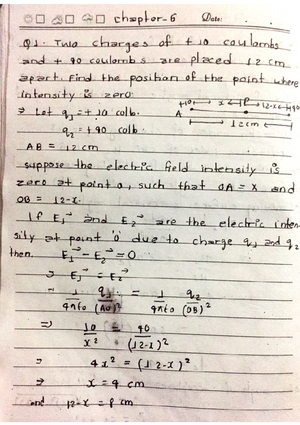 chapter-6 Date:
Q1. Two charges of +10 coulombs
and +90 coulombs are placed 12 cm
apart. Find the position of the point where
intensity is zero.
⇒ Let q1 = +10 colb.
q2 = +90 colb.
+10 x P 12-x +90
A
12 cm
AB = 12 cm
suppose the electric field intensity is
zero at point o, such that OA = X and
OB = 12-x.
If E1→ and E2→ are the electric inten-
sity at point 'o' due to charge q1 and q2
then. E1→ - E2→ = 0
⇒ E1→ = E2→
1/4πε0 q1/(AO)² = 1/4πε0 q2/(OB)²
⇒ 10/x² = 40/(12-x)²
⇒ 4x² = (12-x)²
⇒ x = 4 cm
and 12-x = 8 cm